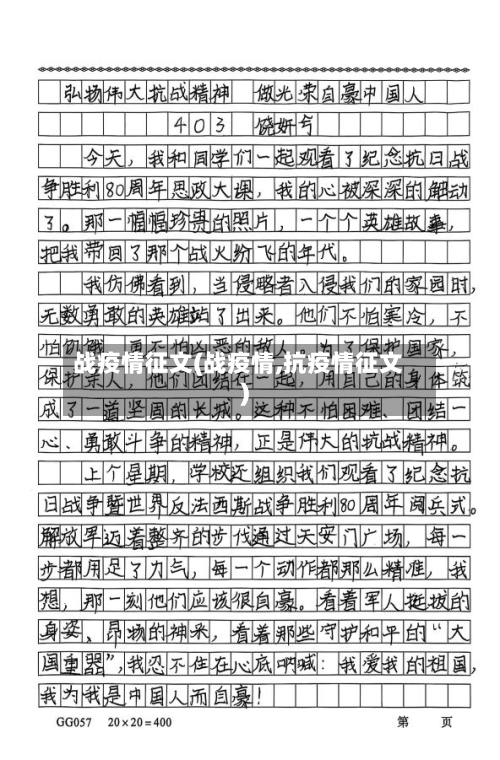 弘扬伟大抗战精神 做光荣自豪中国人
403 饶妍兮
今天，我和同学们一起观看了纪念抗日战
争胜利80周年思政大课，我的心被深深的触动
了。那一幅幅珍贵的照片，一个个英雄故事，
把我带回了那个战火纷飞的年代。
我仿佛看到，当侵略者入侵我们的家园时，
无数勇敢的英雄站了出来。他们不怕寒冷，不
怕饥饿，更不怕凶恶的敌人。为了保护国家，
战疫情征文(战疫情,抗疫情征文
)
保护亲人，他们团结在一起，用自己的身体筑
成了一道坚固的长城。这种不怕困难、团结一
心、勇敢斗争的精神，正是伟大的抗战精神。
上个星期，学校还组织我们观看了纪念抗
日战争暨世界反法西斯战争胜利80周年阅兵式。
解放军迈着整齐的步伐通过天安门广场，每一
步都用足了力气，每一个动作都那么精准，我
想，那一刻他们应该很自豪。看着军人挺拔的
身姿、昂扬的神采，看着那些守护和平的“大
国重器”，我忍不住在心底呐喊：我爱我的祖国，
我为我是中国人而自豪！
GG057 20×20=400 第 页